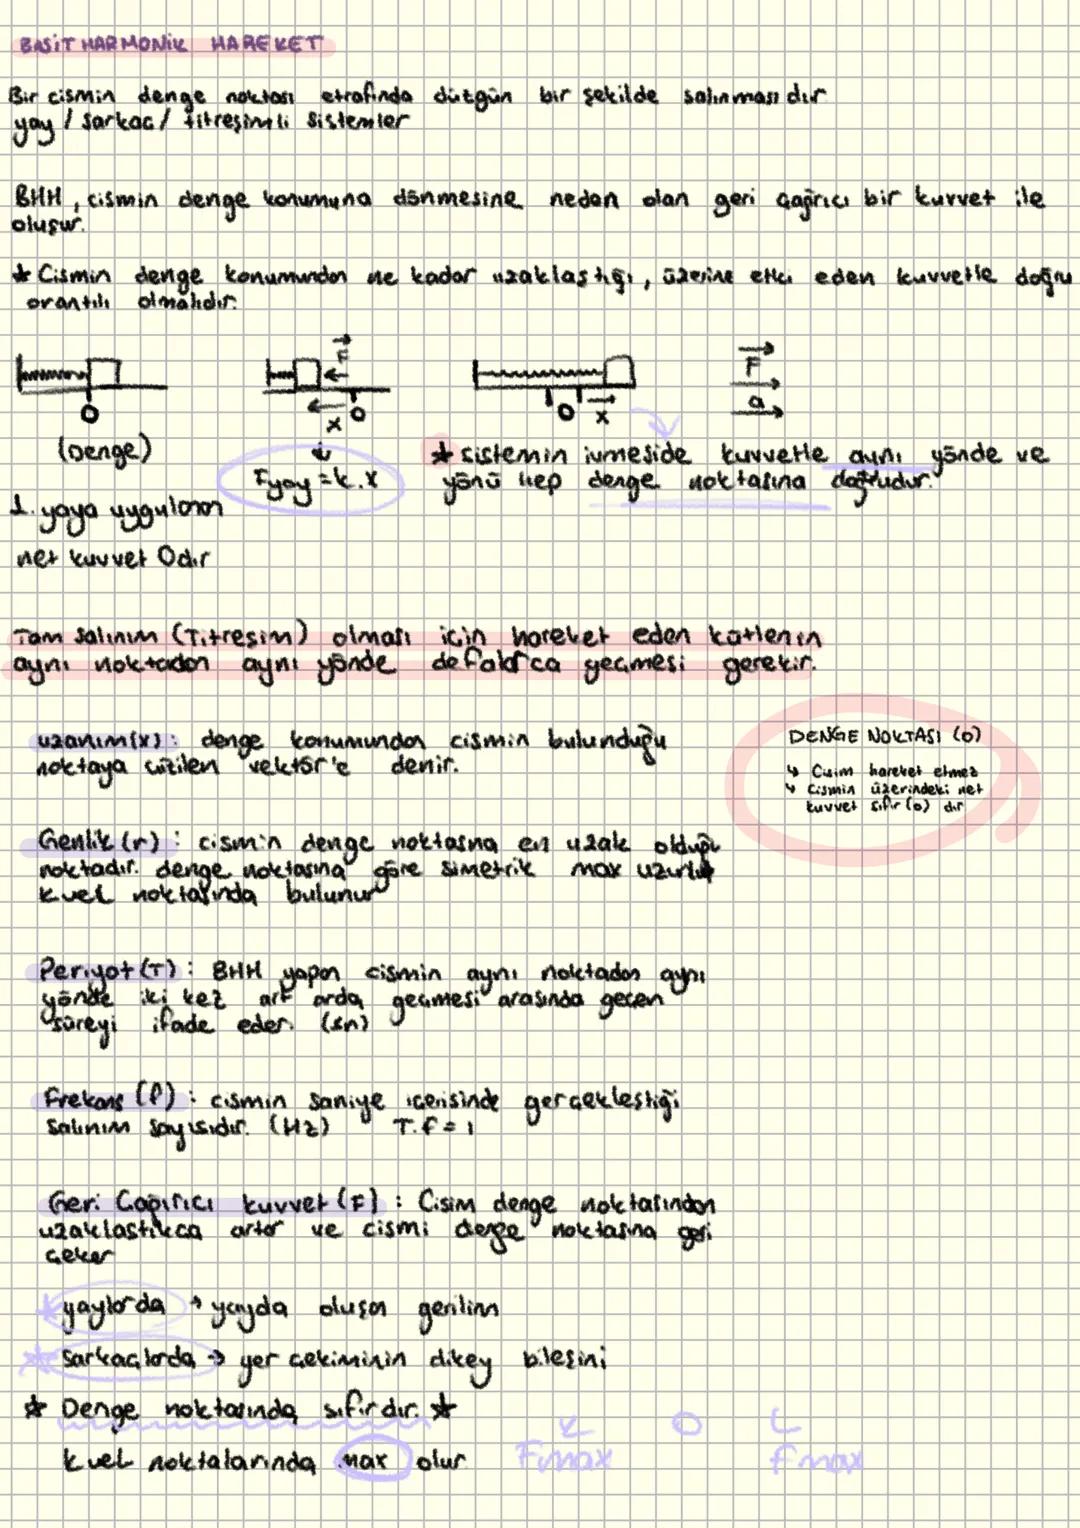 BASİT HARMONİK HAREKET
Bir cismin denge noktası etrafında düzgün bir şekilde salınmasıdır
yay / sarkaç / titreşimli sistemler
BHH, cismin denge konumuna dönmesine neden olan geri çağrıcı bir kuvvet ile
oluşur.
* Cismin denge konumundan ne kadar uzaklaştığı, üzerine etki eden kuvvetle doğru
orantılı olmalıdır.
F
F
O
x
O
O
x
a
(Denge)
Fyay = k.x
* sistemin ivmeside kuvvetle aynı yönde ve
yönü hep denge noktasına doğrudur.
1. yaya uygulanan
net kuvvet 0dır
Tam salınım (Titreşim) olması için hareket eden kütlenin
aynı noktadan aynı yönde defalarca geçmesi gerekir.
uzanım(x): denge konumundan cismin bulunduğu
noktaya çizilen vektör'e denir.
DENGE NOKTASI (O)
↳ Cisim hareket etmez
↳ Cismin üzerindeki net
kuvvet sıfır (0) dır
Genlik (r): cismin denge noktasına en uzak olduğu
noktadır. denge noktasına göre simetrik max uzunluk
kuel noktasında bulunur
Periyot (T): BHH yapan cismin aynı noktadan aynı
yönde iki kez art arda geçmesi arasında geçen
süreyi ifade eder. (sn)
Frekans (f): cismin saniye içerisinde gerçekleştiği
salınım sayısıdır. (Hz) T.f = 1
Geri Çağırıcı kuvvet (F): Cisim denge noktasından
uzaklastıkca artar ve cismi denge noktasına geri
çeker
yaylarda → yayda oluşan gerilim
* Sarkaçlarda → yer çekiminin dikey bileşini
* Denge noktasında sıfırdır. *
kuel noktalarında max olur
Fmax
O
fmax